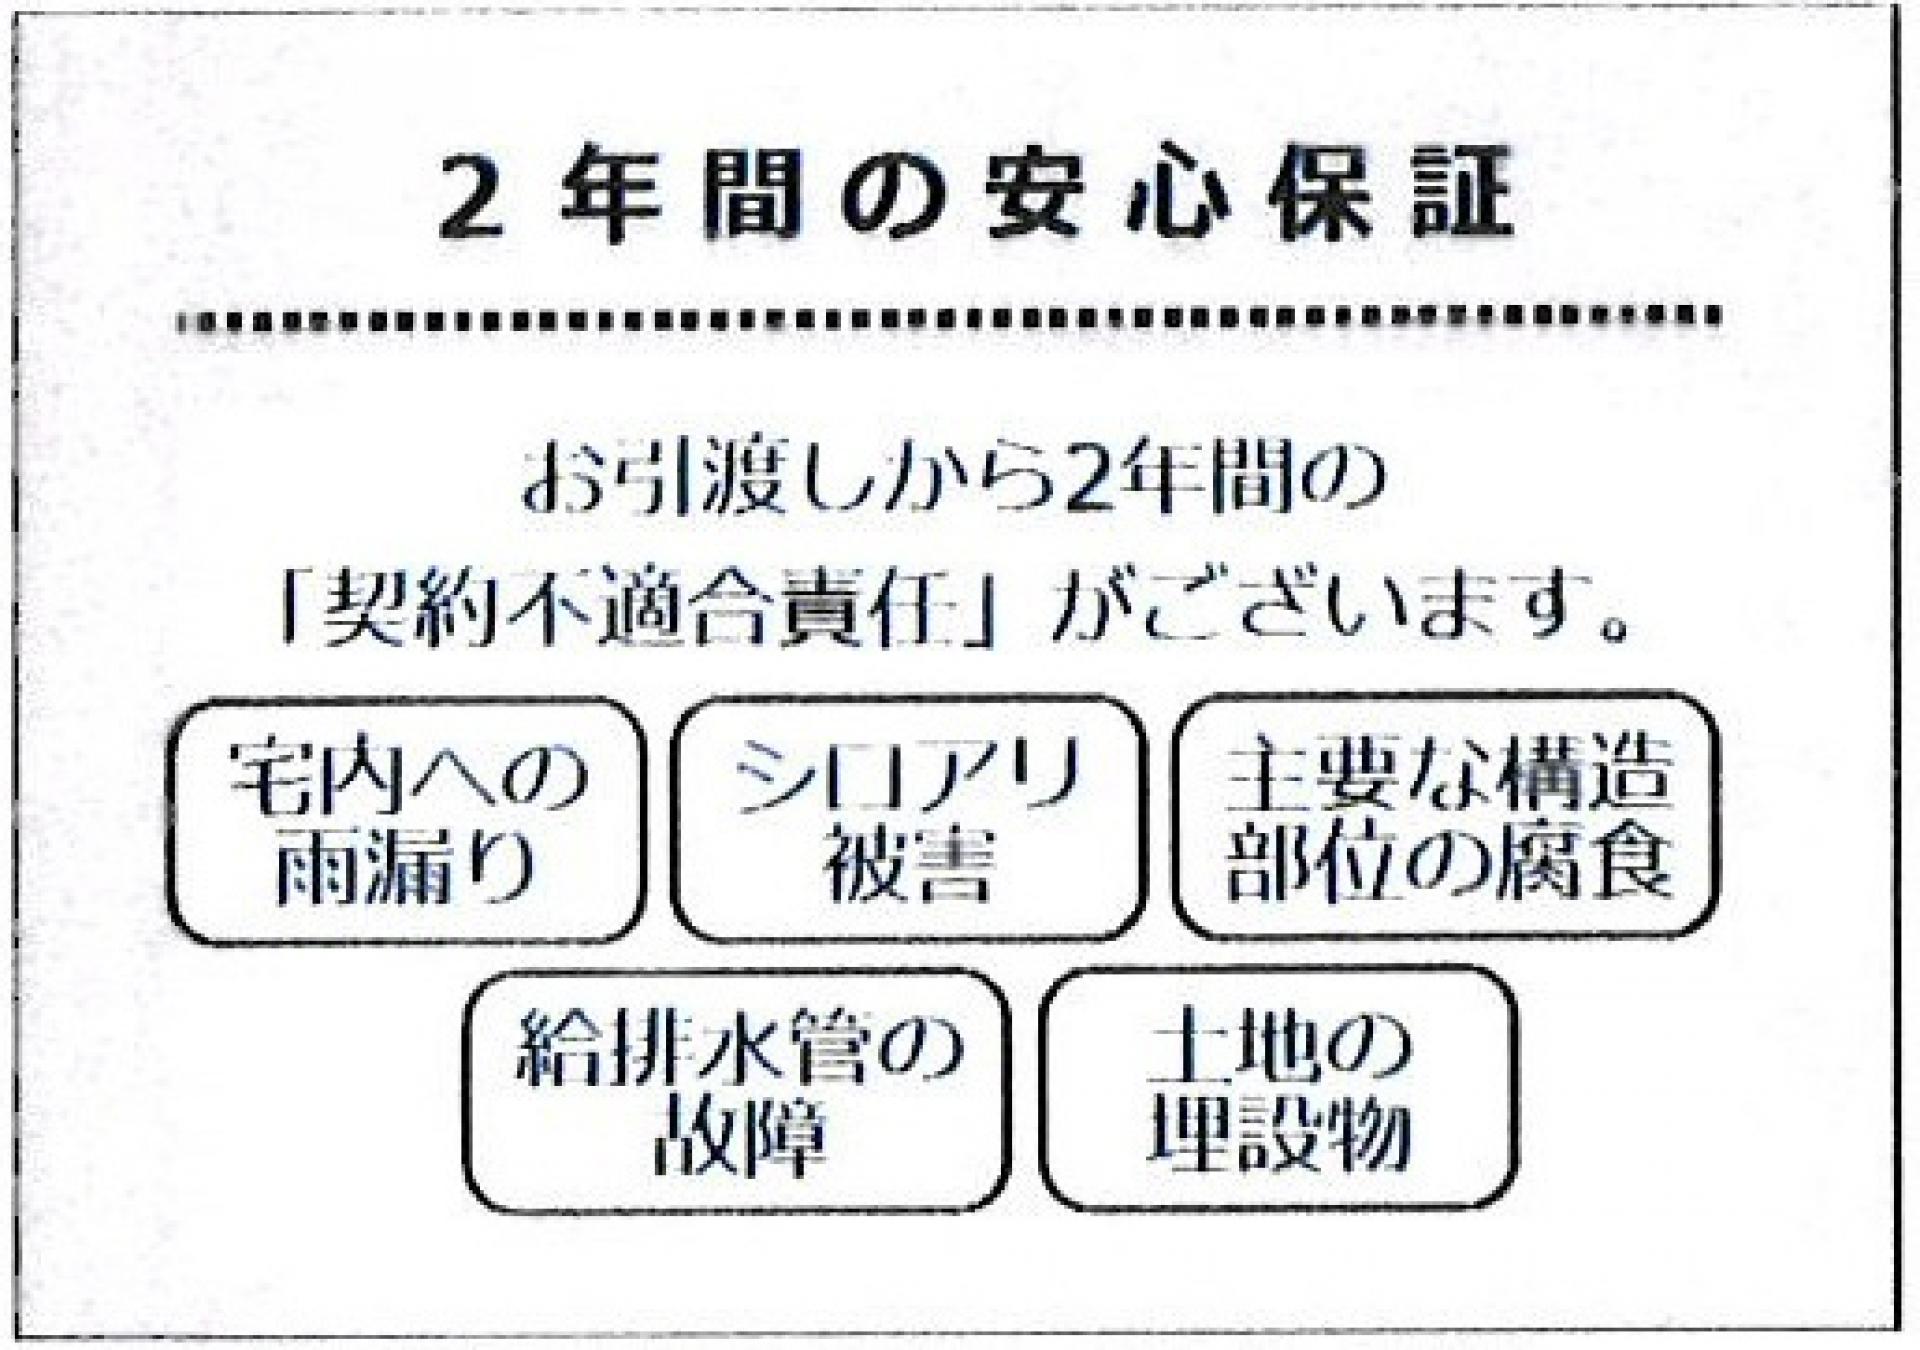 2年間の安心保証
お引渡しから2年間の
「契約不適合責任」がございます。
宅内への
雨漏り
シロアリ
被害
主要な構造
部位の腐食
給排水管の
故障
土地の
埋設物